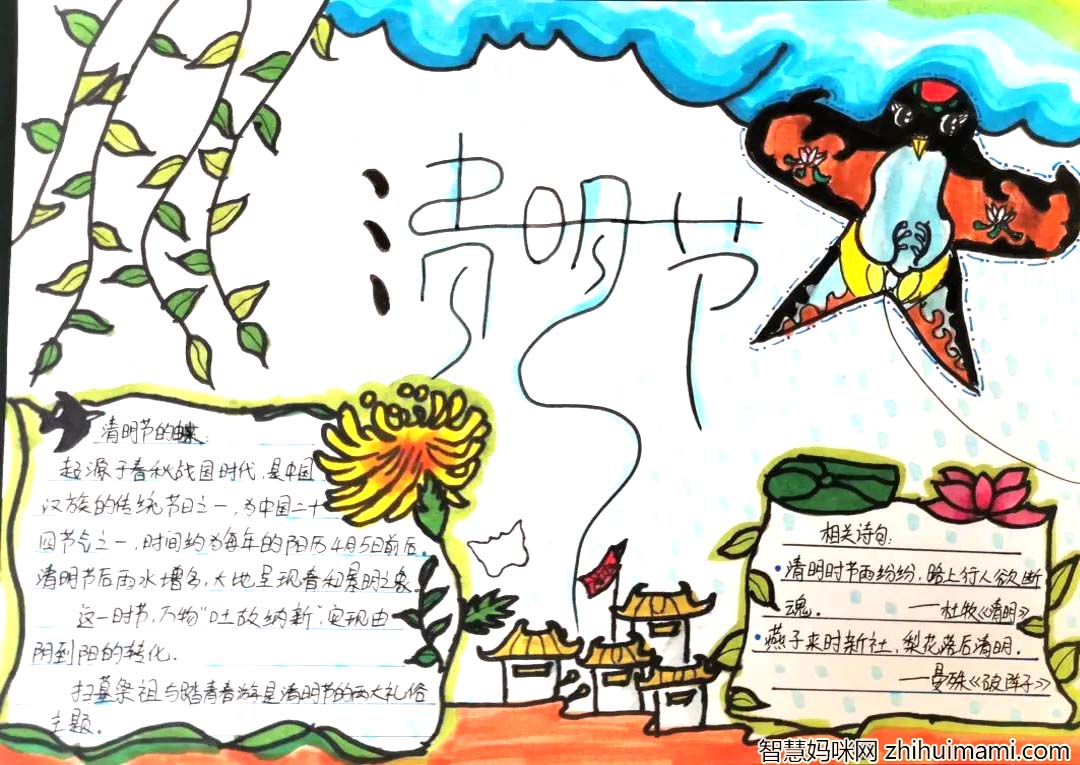 清明节
清明节的
起源于春秋战国时代,是中国
汉族的传统节日之一,为中国二十
四节气之一,时间约为每年的阳历4月5日前后。
清明节后雨水增多,大地呈现春和景明之象。
这一时节,万物“吐故纳新”,实现由
阴到阳的转化。
扫墓祭祖与踏青春游是清明节的两大礼俗
主题。
相关诗句:
·清明时节雨纷纷,路上行人欲断
魂。 ——杜牧《清明》
·燕子来时新社,梨花落后清明。
——晏殊《破阵子》
智慧妈咪网 zhihuimami.com